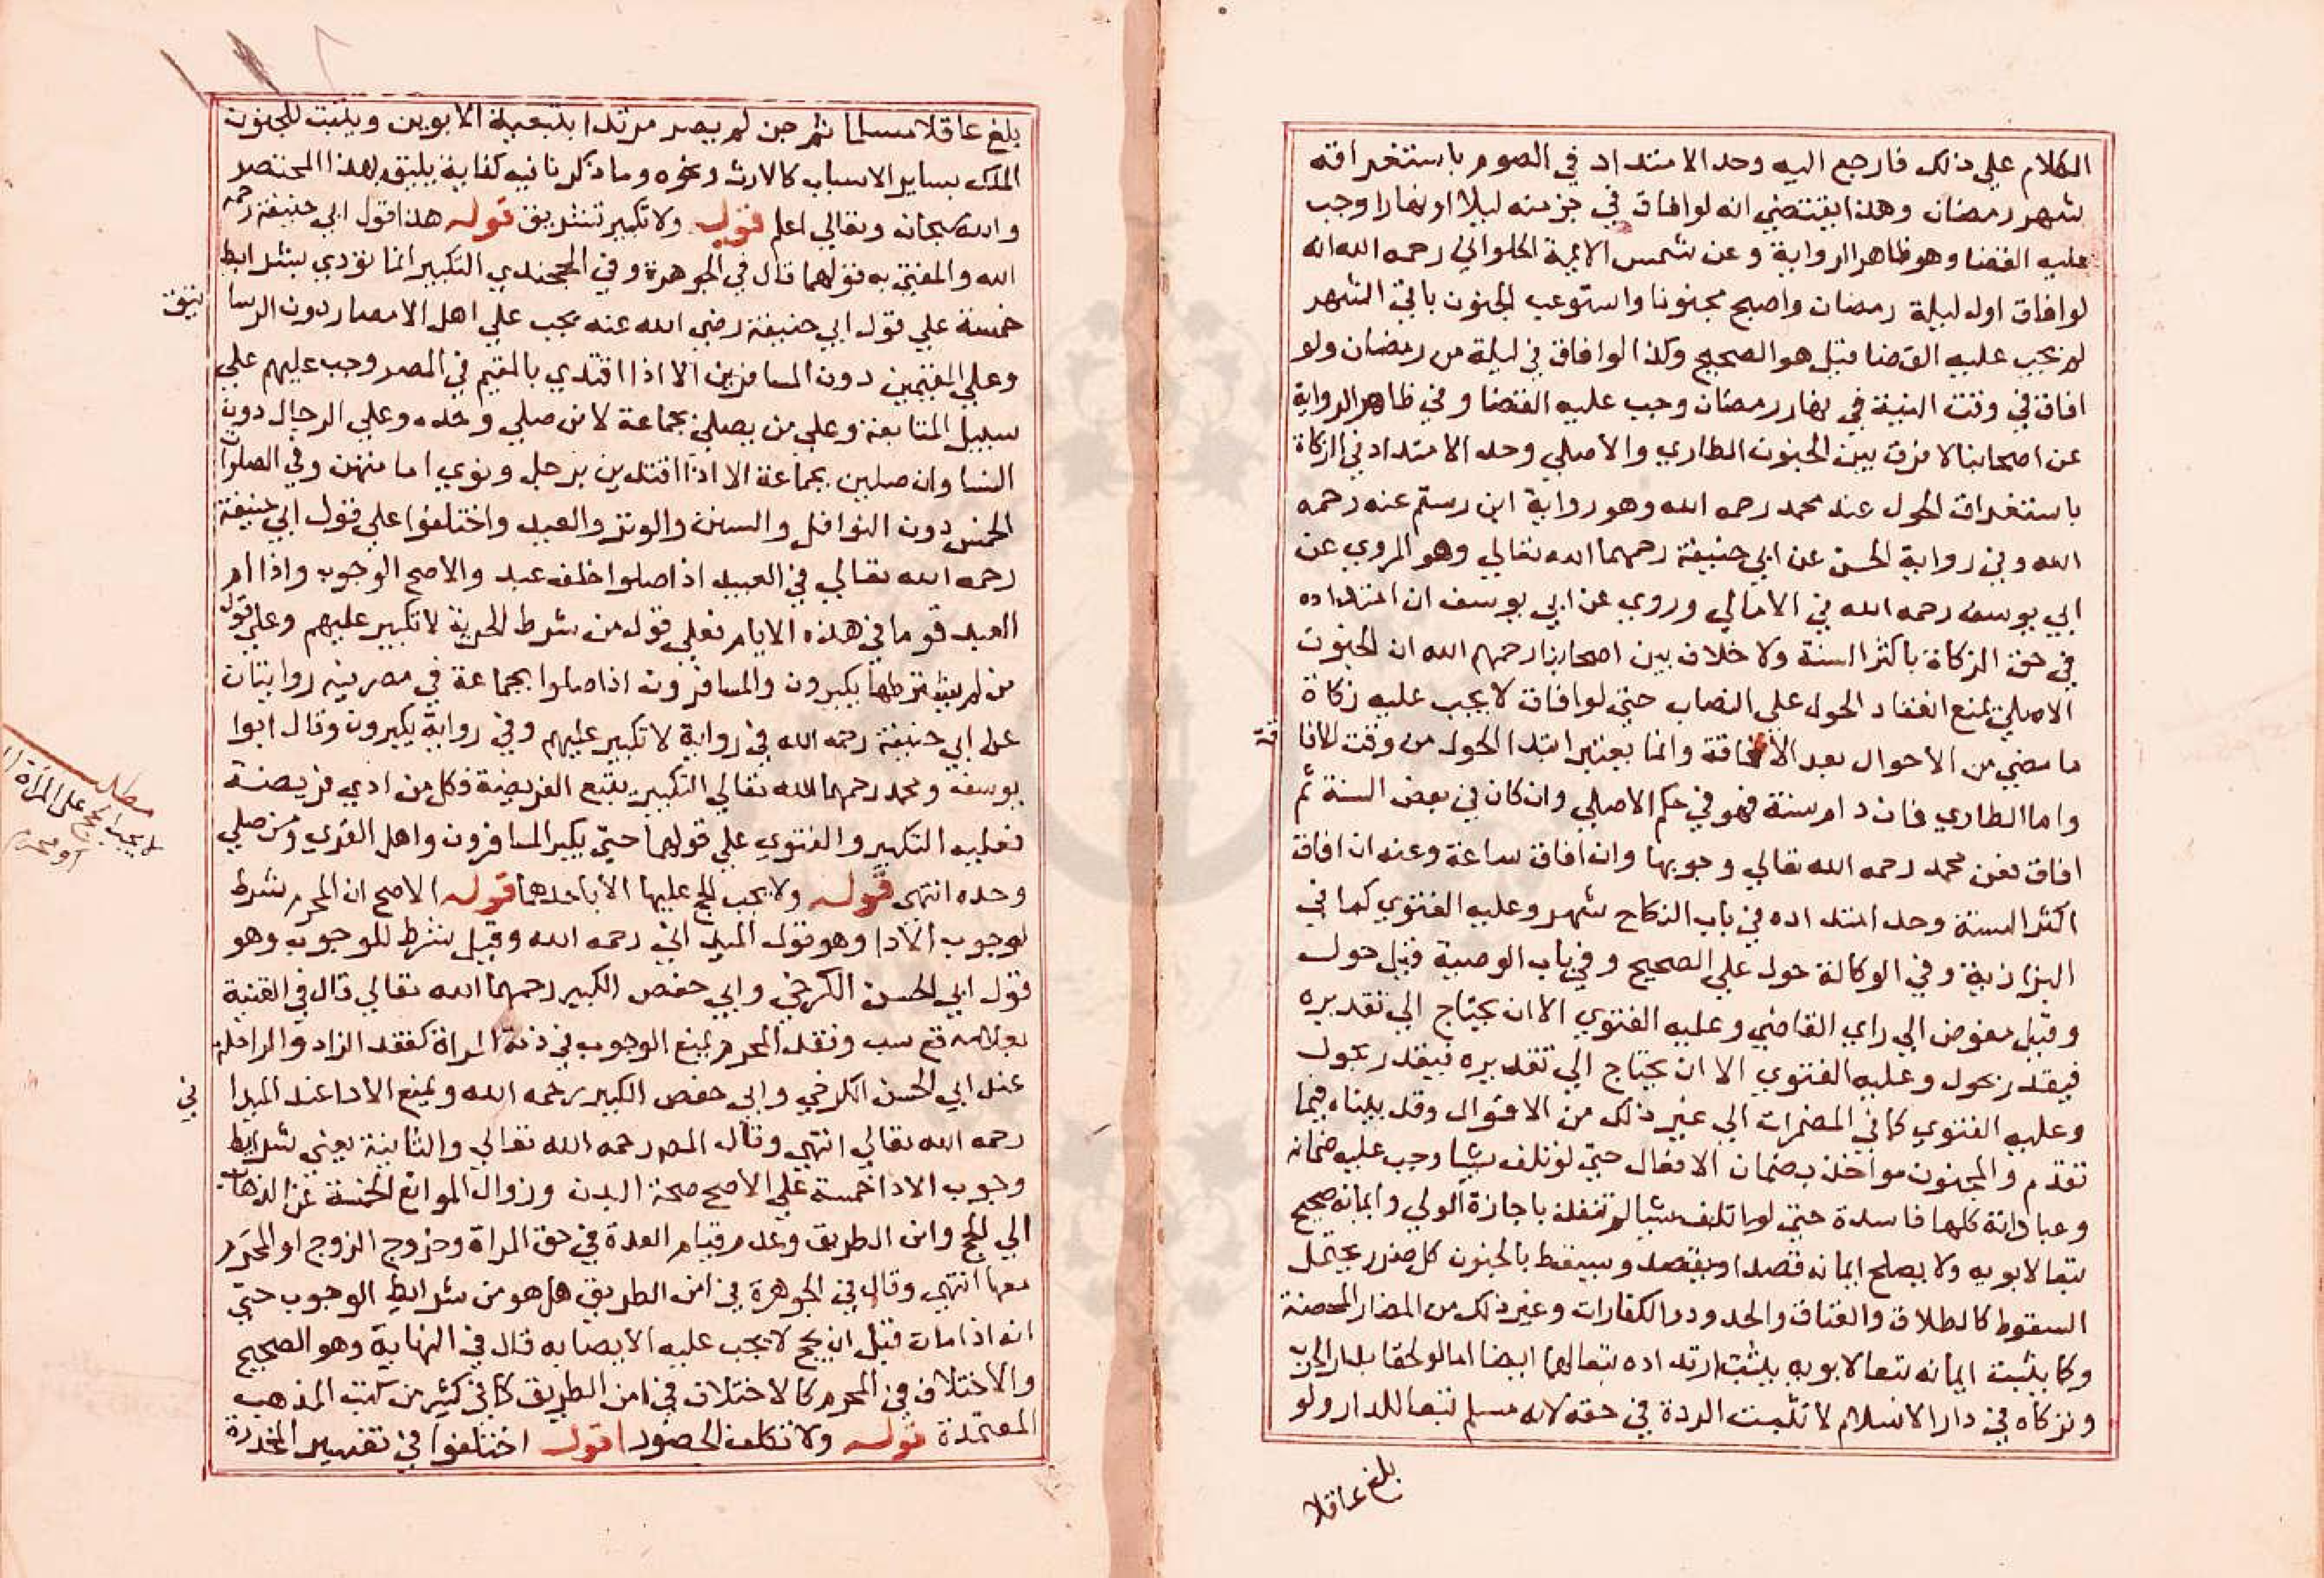 الكلام علي ذلك فارجع اليه وحد الامتداد في الصوم باستغراقه
شهر رمضان وهذا يقتضي انه لو افاق في جزء منه ليلا او نهارا وجب
عليه القضا وهو ظاهر الرواية وعن شمس الايمة الحلواني رحمه الله انه
لو افاق اول ليلة رمضان واصبح مجنونا واستوعب الجنون باقي الشهر
لم يجب عليه القضا قيل هو الصحيح وكذا لو افاق في ليلة من رمضان ولو
افاق في وقت النية في نهار رمضان وجب عليه القضا وفي ظاهر الرواية
عن اصحابنا لا فرق بين الجنون الطاري والاصلي وحد الامتداد في الزكاة
باستغراق الحول عند محمد رحمه الله وهو رواية ابن رستم عنه رحمه
الله وفي رواية الحسن عن ابي حنيفة رحمهما الله تعالي وهو المروي عن
ابي يوسف رحمه الله في الامالي وروي عن ابي يوسف ان امتداده
في حق الزكاة باكثر السنة ولا خلاف بين اصحابنا رحمهم الله ان الجنون
الاصلي يمنع انعقاد الحول علي النصاب حتي لو افاق لا يجب عليه زكاة
ما مضي من الاحوال بعد الافاقة وانما يعتبر ابتدا الحول من وقت الافا
قة
واما الطاري فان دام سنة فهو في حكم الاصلي وان كان في بعض السنة ثم
افاق فعن محمد رحمه الله تعالي وجوبها وان افاق ساعة وعنه ان افاق
اكثر السنة وحد امتداده في باب النكاح شهر وعليه الفتوي كما في
البزازية وفي الوكالة حول علي الصحيح وفي باب الوصية قيل حول
وقيل مفوض الي راي القاضي وعليه الفتوي الا ان يحتاج الي تقديره
فيقدر بحول وعليه الفتوي الا ان يحتاج الي تقديره فيقدر بحول
وعليه الفتوي كما في المضمرات الي غير ذلك من الاقوال وقد بيناه فيما
تقدم والمجنون مواخذ بضمان الافعال حتي لو تلف شيا وجب عليه ضمانه
وعباراته كلها فاسدة حتي لو اتلف شيا لم تنفذ باجازة الولي وايمانه صحيح
تبعا لابويه ولا يصلح ايمانه قصدا ويقصد ويسقط بالجنون كل ضرر يحتمل
السقوط كالطلاق والعتاق والحدود والكفارات وغير ذلك من المضار المحضة
وكما يثبت ايمانه تبعا لابويه يثبت ارتداده تبعا لهما ايضا اما لو لحقا بدار الحرب
وتركاه في دار الاسلام لا تثبت الردة في حقه لانه مسلم تبعا للدار ولو
بلغ عاقلا
بلغ عاقلا مسلما ثم جن لم يصر مرتدا بتبعية الابوين ويثبت للمجنون
الملك بساير الاسباب كالارث ونحوه وما ذكرنا فيه كفاية يليق بهذا المختصر
والله سبحانه وتعالي اعلم قوله ولا تكبير تشريق قوله هذا قول ابي حنيفة رحمه
الله والمفتي به قولهما قال في الجوهرة وفي الخجندي التكبير انما يؤدي بشرايط
خمسة علي قول ابي حنيفة رضي الله عنه يجب علي اهل الامصار دون الرسا
تيق
وعلي المقيمين دون المسافرين الا اذا اقتدي بالمقيم في المصر وجب عليهم علي
سبيل المتابعة وعلي من يصلي بجماعة لا من صلي وحده وعلي الرجال دون
النسا وان صلين بجماعة الا اذا اقتدين برجل ونوي امامتهن وفي الصلوات
الخمس دون النوافل والسنن والوتر والعيد واختلفوا علي قول ابي حنيفة
رحمه الله تعالي في العبيد اذا صلوا خلف عبد والاصح الوجوب واذا ام
العبد قوما في هذه الايام فعلي قول من شرط الحرية لا تكبير عليهم وعلي قول
من لم يشترطها يكبرون والمسافرون اذا صلوا بجماعة في مصر فيه روايتان
عن ابي حنيفة رحمه الله في رواية لا تكبير عليهم وفي رواية يكبرون وقال ابوا
يوسف ومحمد رحمهما الله تعالي التكبير يتبع الفريضة فكل من ادي فريضة
فعليه التكبير والفتوي علي قولهما حتي يكبر المسافرون واهل القري ومن صلي
وحده انتهي قوله ولا يجب الحج عليها الا باحدهما قوله الاصح ان المحرم شرط
مطلب
لا يجب الحج علي المراة الا
او محرم
لوجوب الادا وهو قول الميداني رحمه الله وقيل شرط للوجوب وهو
قول ابي الحسن الكرخي وابي حفص الكبير رحمهما الله تعالي قال في القنية
بعلامة قع سب وفقد المحرم يمنع الوجوب في ذمة المراة كفقد الزاد والراحلة
عند ابي الحسن الكرخي وابي حفص الكبير رحمه الله ويمنع الادا عند الميدا
ني
رحمه الله تعالي انتهي وقال المص رحمه الله تعالي والثانية يعني شرايط
وجوب الادا خمسة علي الاصح صحة البدن وزوال الموانع الحسية عن الذهاب
الي الحج وامن الطريق وعدم قيام العدة في حق المراة وخروج الزوج او المحرم
معها انتهي وقال في الجوهرة في امن الطريق هل هو من شرايط الوجوب حتي
انه اذا مات قبل ان يحج لا يجب عليه الايصا به قال في النهاية وهو الصحيح
والاختلاف في المحرم كالاختلاف في امن الطريق كما في كثير من كتب المذهب
المعتمدة قوله ولا تكلف الحضور اقول اختلفوا في تفسير المخدرة